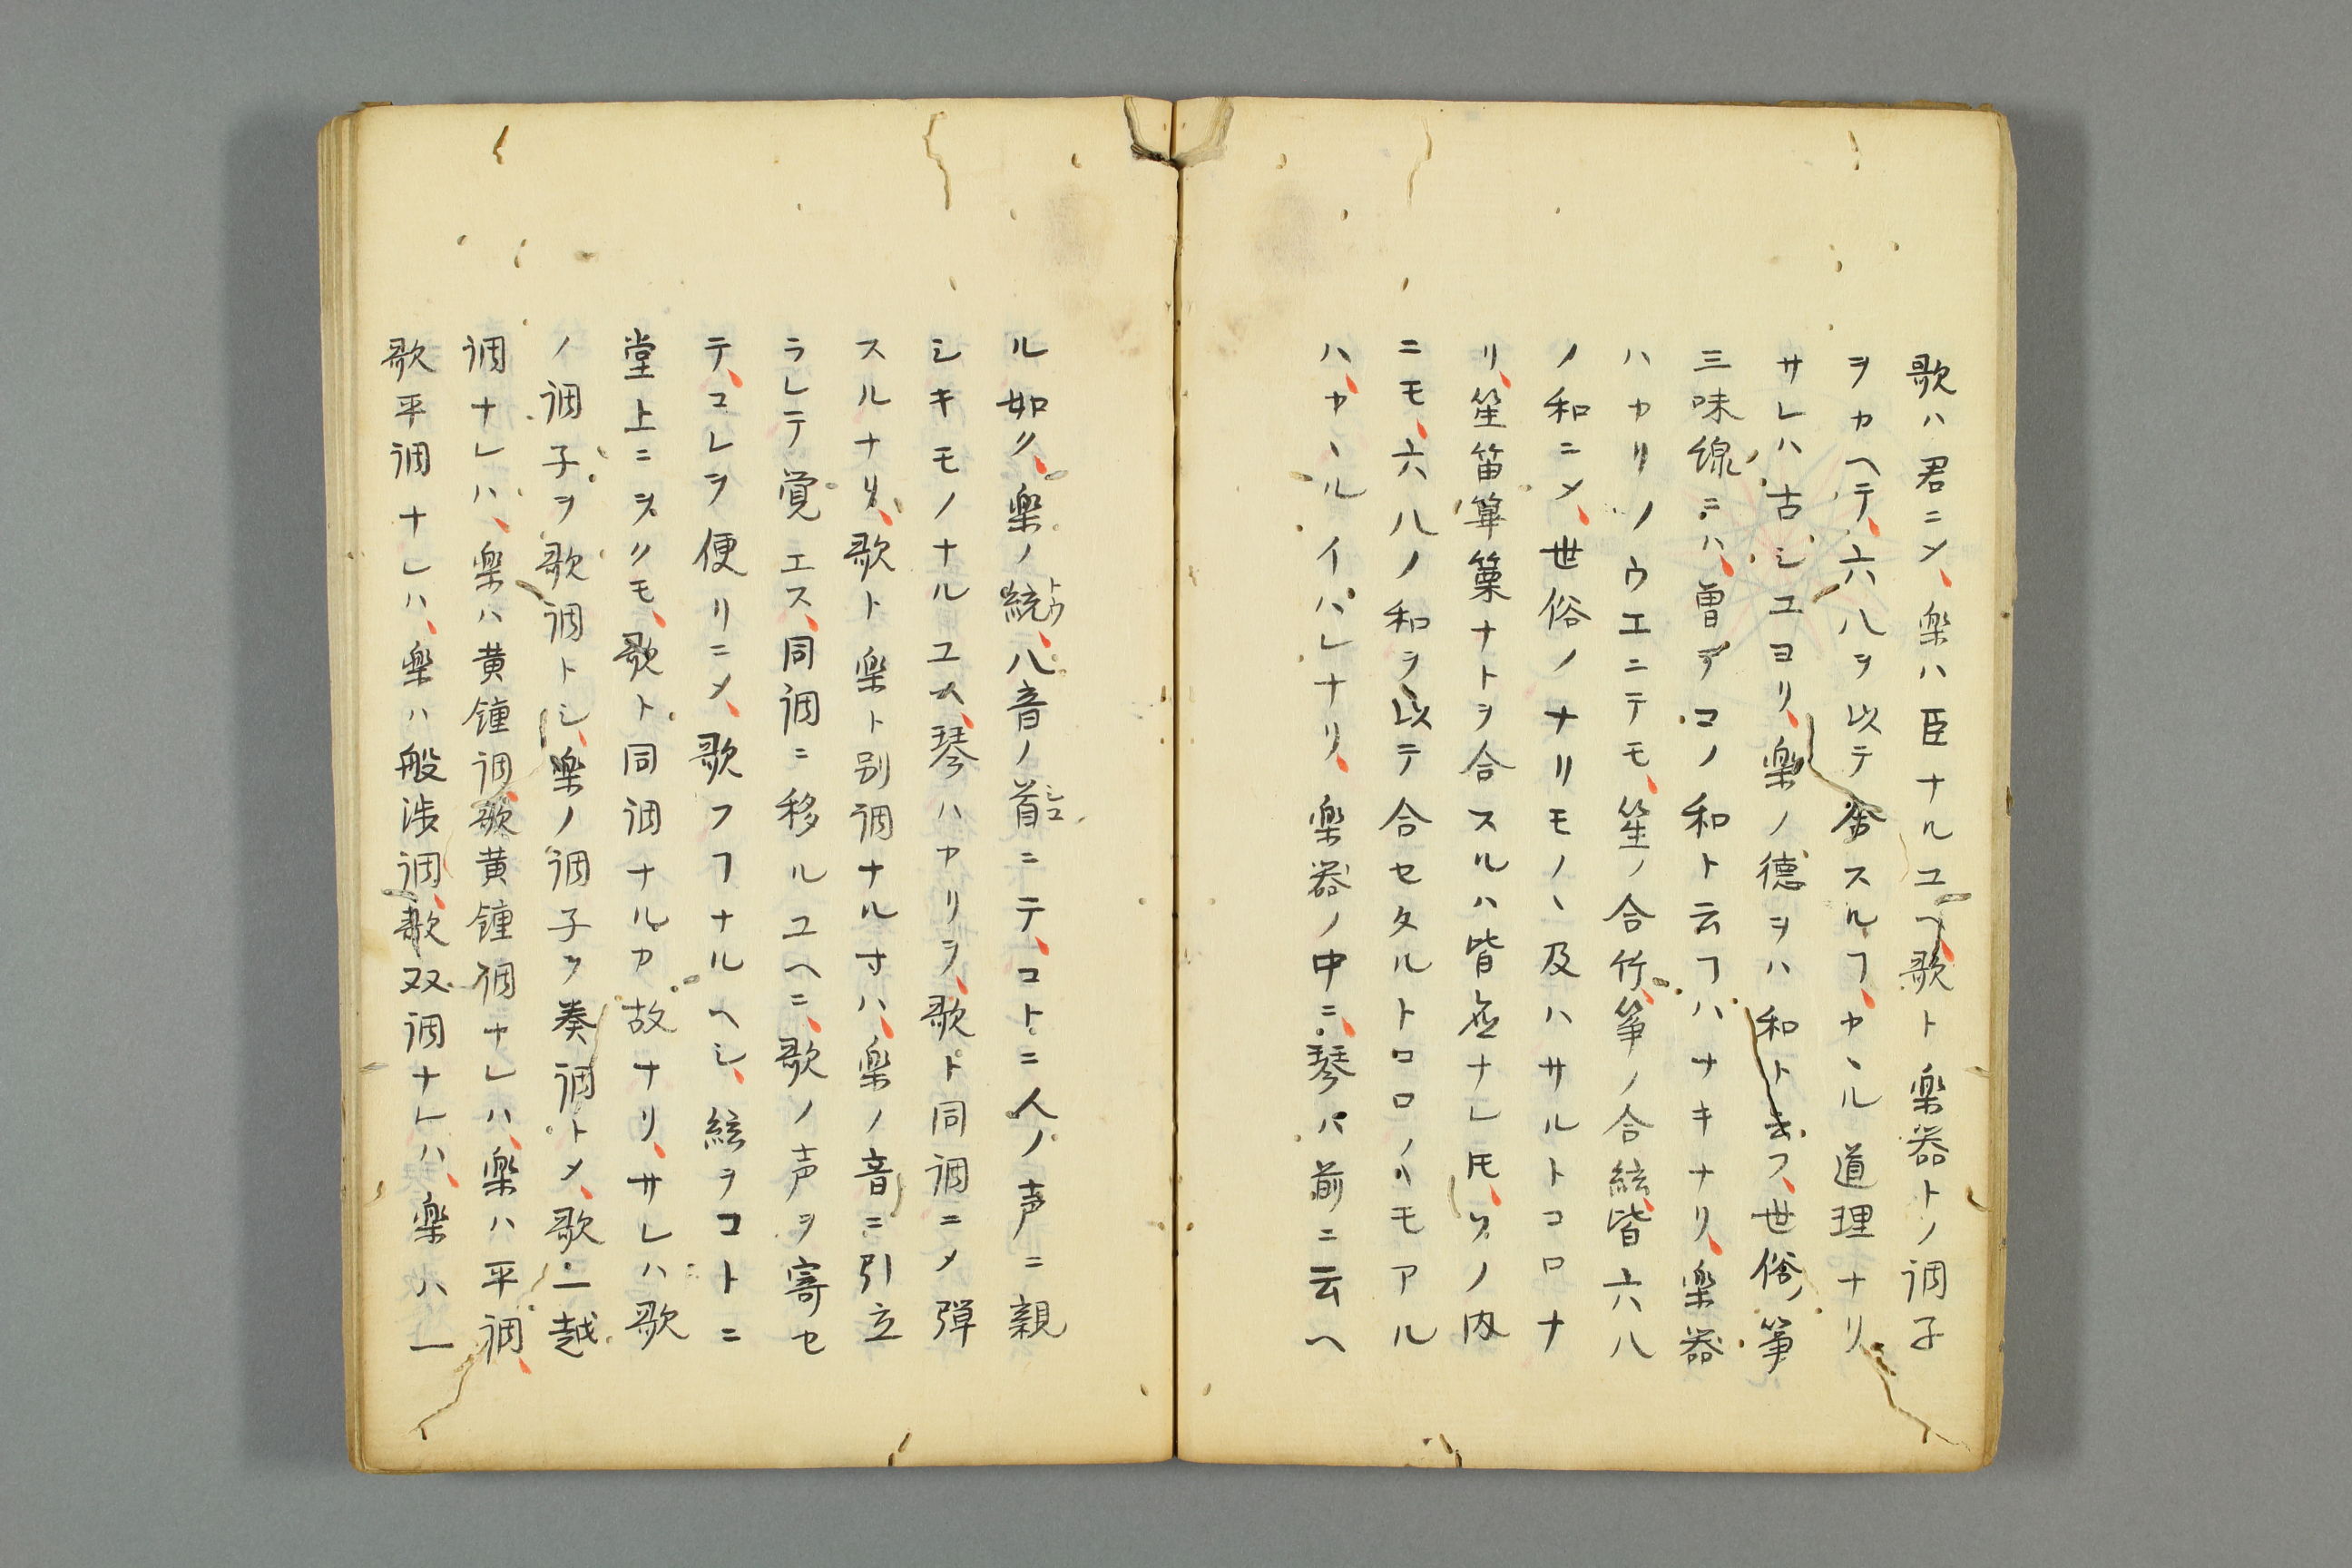 歌ハ君ニメ、楽ハ臣ナルユヘ、歌ト楽器トノ调子
ヲカヘテ、六八ヲ以テ合スルフ、カヽル道理ナリ
サレハ古シユヨリ、楽ノ徳ヲハ和ト云フ、世俗箏
三味線ニハ、曽テコノ和ト云フハナキナリ、楽器
ハカリノウエニテモ、笙ノ合竹、箏ノ合絃、皆六八
ノ和ニメ、世俗ノナリモノヽ及ハサルトコロナ
リ、笙笛篳篥ナトヲ合スルハ皆應ナレ𪜈、ソノ内
ニモ、六八ノ和ヲ以テ合セタルトコロノモアル
ハ、カヽルイハレナリ、楽器ノ中ニ、琴ハ前ニ云ヘ
ル如ク、楽ノ統トウ、八音ノ首シユニテ、コトニ人ノ声ニ親
シキモノナルユヘ、琴ハカリヲ、歌ト同调ニメ弾
スルナリ、歌ト楽ト别调ナル寸ハ、楽ノ音ニ引立
ラレテ覚エス、同调ニ移ルユヘニ、歌ノ声ヲ寄セ
テ、コレヲ便リニメ、歌フフナルヘシ、絃ヲコトニ
堂上ニヲクモ、歌ト同调ナルカ故ナリ、サレハ歌
ノ调子ヲ歌调トシ、楽ノ调子ヲ奏调トメ、歌一越
调ナレハ、楽ハ黄鐘调、歌黄鐘调ナレハ、楽ハ平调、
歌平调ナレハ、楽ハ般渉调、歌双调ナレハ、楽ハ一